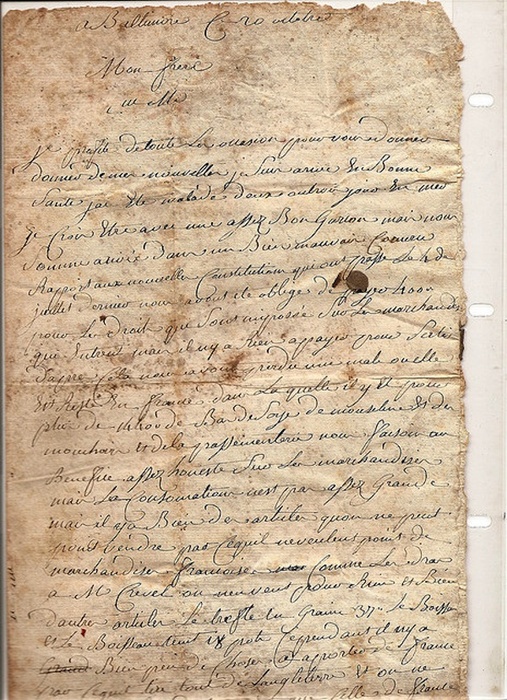 a Baltimore Ce 10 octobre
Mon frere
Je profite de toute les ocasion pour vous donner
donner de mes nouvelles je suis arrivé En Bonne
Santé j'ai été malade deux ou trois jour En mer
Je Croix Etre avec une assez Bon Garson mais nous
somme arrivé dans un Bien mauvais
Raport aux nouvelles Constitution qui ont passe le 4 de
juillet dernier nous avons été obligé de payer 4000
pour les droit que sont imposse sur les marchandis
qui Entrent mais il n'y a rien a payer pour Sortir
nous avons perdue une malle ouelle
Est Resté En france dans la quelle il y Et pour
plus de de Bas de Soye de mouseline Et des
mouchoir Et de la passementerie nous faison un
Benefice assez honeste sur les marchandises
mais la Consomation n'est pas assez Grande
mais il y a Bien des articles quon ne peut
point vendre par Cequil ne veulent point de
marchandises francoise Comme les drap
a M. Crevel on ne veut pour Rien et Bien
dautre articles Le trefle En Graine 37 Le Boisseau
Et Le Boisseau tient 18 pote Cependant il n'y a
Bien peu de Choses a aporter de france
par Cequil tire tout de Langleterre Et on ne
de france